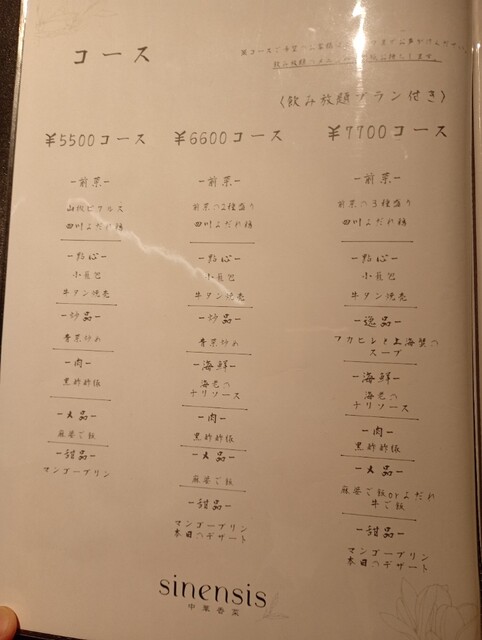 コース
(飲み放題プラン付き)
¥5500コース
-前菜-
山椒ピクルス
四川よだれ鶏
-點心-
小籠包
牛タン焼売
-炒品-
青菜炒め
-肉-
黒酢酢豚
-大品-
麻婆ご飯
-甜品-
マンゴープリン
¥6600コース
-前菜-
前菜の2種盛り
四川よだれ鶏
-點心-
小籠包
牛タン焼売
-炒品-
青菜炒め
-海鮮-
海老の
チリソース
-肉-
黒酢酢豚
-大品-
麻婆ご飯
-甜品-
マンゴープリン
本日のデザート
¥7700コース
-前菜-
前菜の3種盛り
四川よだれ鶏
-點心-
小籠包
牛タン焼売
-逸品-
フカヒレと上海蟹の
スープ
-海鮮-
海老の
チリソース
-肉-
黒酢酢豚
-大品-
麻婆ご飯orよだれ
牛ご飯
-甜品-
マンゴープリン
本日のデザート
sinensis
中華香菜